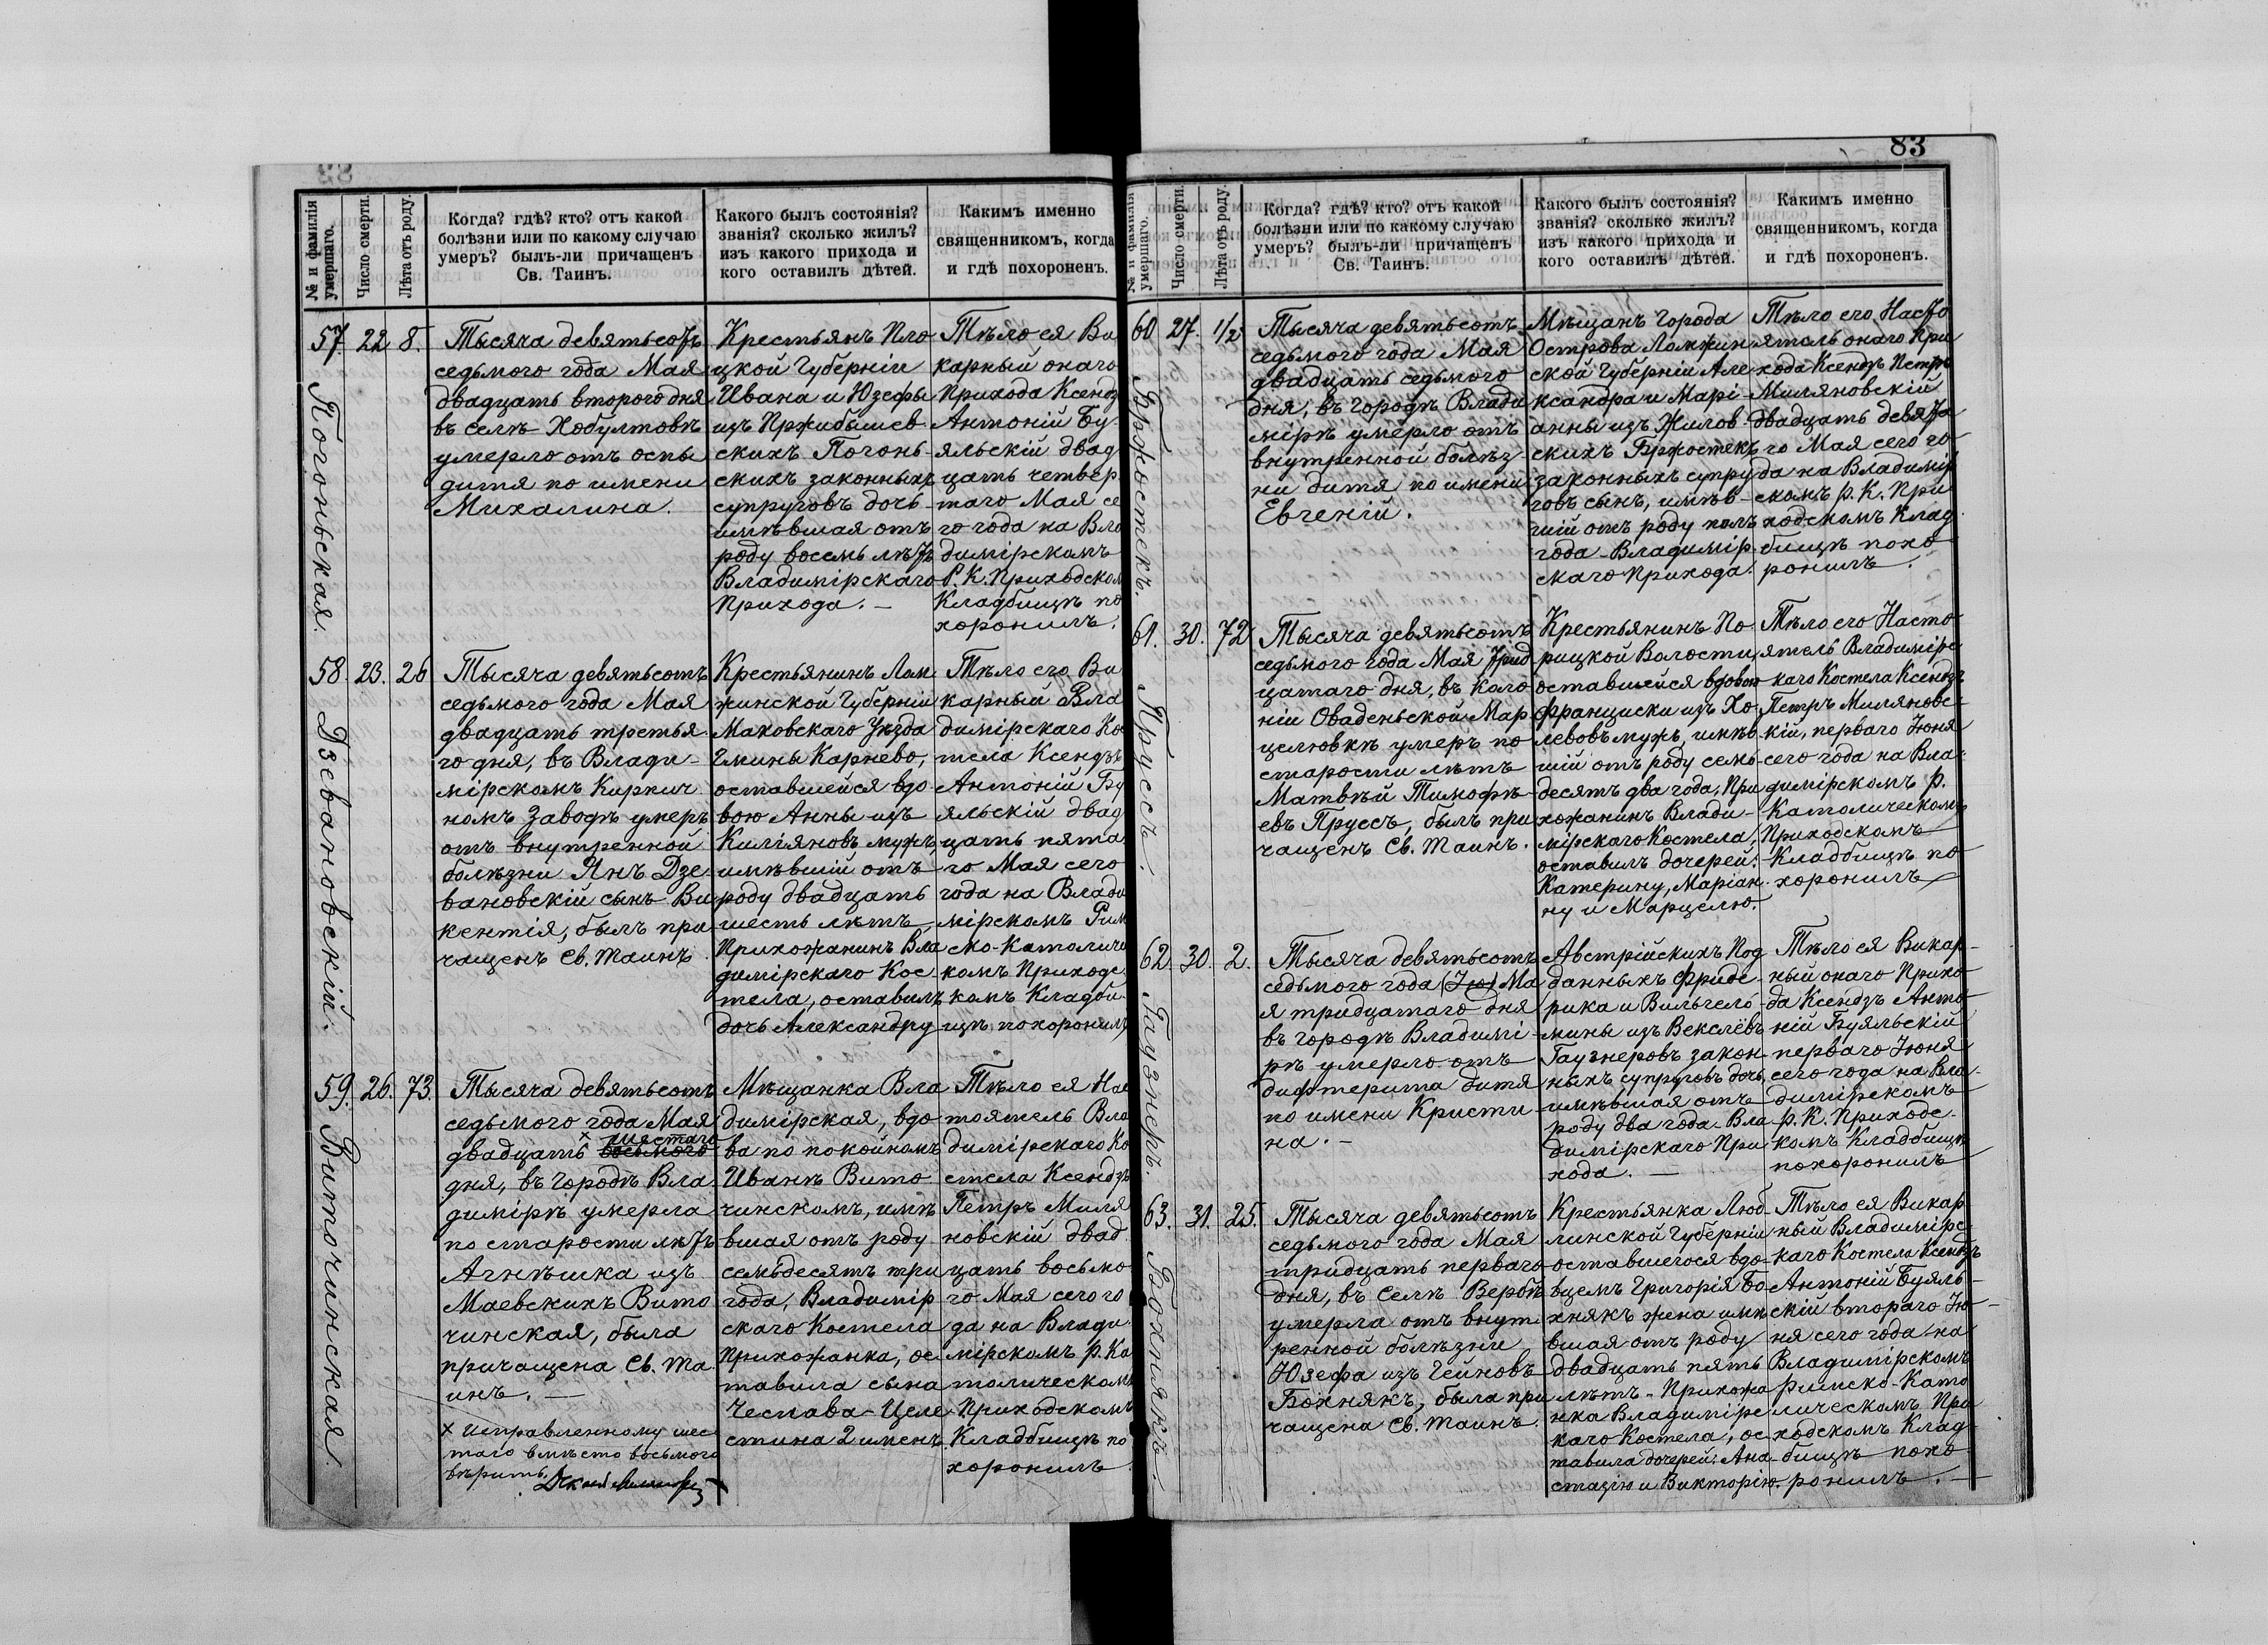 83
№ и фамилія умершаго.
Число смерти.
Лѣта отъ роду.
Когда? гдѣ? кто? отъ какой
болѣзни или по какому случаю
умеръ? былъ-ли причащенъ
Св. Таинъ.
Какого былъ состоянія?
званія? сколько жилъ?
изъ какого прихода и
кого оставилъ дѣтей.
Какимъ именно
священникомъ, когда
и гдѣ похороненъ.
57. 22 8.
Погоньская.
Тысяча девятьсотъ
седьмого года Мая
двадцать второго дня
въ селѣ Хобултовѣ
умерло отъ оспы
дитя по имени
Михалина.
Крестьянъ Пло
цкой Губерніи
Ивана и Юзефы
изъ Пржибышев
скихъ Погонь
скихъ законныхъ
супруговъ дочь
имѣвшая отъ
роду восемь лѣтъ
Владимірскаго
Прихода. —
Тѣло ея Ви
карный онаго
Прихода Ксендз
Антоній Бу-
яльскій двад
цать четвер
таго Мая се
го года на Вла
димірскомъ
Р. К. Приходском
Кладбищѣ по
хоронилъ.
58. 23. 26
Дзевановскій.
Тысяча девятьсотъ
седьмого года Мая
двадцать третья
го дня, въ Влади-
мірскомъ Кирпич
номъ Заводѣ умеръ
отъ внутренной
болѣзни Янъ Дзе
вановскій сынъ Ви
кентія, былъ при
чащенъ Св. Таинъ
Крестьянинъ Лом
жинской Губерніи
Маковскаго Уѣзда
Гмины Карнево,
оставшейся вдо
вою Анны изъ
Килiяновъ мужъ,
имѣвшій отъ
роду двадцать
шесть лѣтъ,
Прихожанинъ Вла
димірскаго Кос
тела, оставилъ
дочь Александру
Тѣло его Ви
карный Вла
димірскаго Ко
тела Ксендзъ
Антоній Бу
яльскій двад
цать пята
го Мая сего
года на Влади
мірскомъ Рим
ско-Католиче
комъ Приходс
комъ Кладби
щѣ похоронилъ
59. 26. 73.
Виточинская.
Тысяча девятьсотъ
седьмого года Мая
× шестаго
двадцать восьмого
дня, въ городѣ Вла
димірѣ умерла
по старости лѣтъ
Агнѣшка изъ
Маевскихъ Вито
чинская, была
причащена Св. Та
инъ. —
× Исправленному шес
таго вмѣсто восьмого
вѣрить.
Мѣщанка Вла
димірская, вдо
ва по покойномъ
Иванѣ Вито
чинскомъ, имѣ
вшая отъ роду
семьдесятъ три
года, Владимір
скаго Костела
Прихожанка, ос
тавила сына
Чеслава-Целе
стина 2 именъ
Тѣло ея Нас
тоятель Вла
димірскаго Ко
стела Ксендзъ
Петръ Миля
новскій двад
цать восьмо
го Мая сего го
да на Влади
мірскомъ р. Ка
толическомъ
Приходскомъ
Кладбищѣ по
хоронилъ
83
№ и фамилія умершаго.
Число смерти.
Лѣта отъ роду.
Когда? гдѣ? кто? отъ какой
болѣзни или по какому случаю
умеръ? былъ-ли причащенъ
Св. Таинъ.
Какого былъ состоянія?
званія? сколько жилъ?
изъ какого прихода и
кого оставилъ дѣтей.
Какимъ именно
священникомъ, когда
и гдѣ похороненъ.
60 27. 1/2
Бржостекъ.
Тысяча девятьсотъ
седьмого года Мая
двадцать седьмого
дня, въ городѣ Влади
мірѣ умерло отъ
внутренной болѣз-
ни дитя по имени
Евгеній.
Мѣщанъ города
Острова Ломжин
ской Губерніи Але
ксандра и Марі-
анны изъ Жилов
скихъ Бржостекъ
законныхъ супру
говъ сынъ, имѣв-
шій отъ роду полъ
года Владимір
скаго Прихода.
Тѣло его Насто
ятель онаго При
хода Ксендзъ Петръ
Миляновскій
двадцать девята
го Мая сего го
да на Владимір
скомъ р. К. При
ходскомъ Клад
бищѣ похо
ронилъ.
61. 30. 72
Пруссъ.
Тысяча девятьсотъ
седьмого года Мая трид
цатаго дня, въ коло
ніи Оваденьской Мар
целювкѣ умеръ по
старости лѣтъ
Матвѣй Тимофѣ-
евъ Пруссъ, былъ при
чащенъ Св. Таинъ.
Крестьянинъ По
рицкой Волости,
оставшейся вдовою
Франциски изъ Хо
левовъ мужъ, имѣв
шій отъ роду семь
десятъ два года, При
хожанинъ Влади-
мірскаго Костела,
оставилъ дочерей:
Катерину, Маріан
ну и Марцелю.
Тѣло его Насто
ятель Владимірс
каго Костела Ксендзъ
Петръ Миляновс-
кій, перваго Іюня
сего года на Вла-
димірскомъ р.
Католическомъ
Приходскомъ
Кладбищѣ по
хоронилъ
62. 30. 2.
Гаузнеръ.
Тысяча девятьсотъ
седьмого года (Ію) Ма
я тридцатаго дня
въ городѣ Владимі-
рѣ умерло отъ
дифтерита дитя
по имени Кристи
на. —
Австрійскихъ Под
данныхъ Фриде-
рика и Вильгель-
мины изъ Векслёвъ
Гаузнеровъ закон
ныхъ супруговъ дочь,
имѣвшая отъ
роду два года Вла
димірскаго При
хода. —
Тѣло ея Викар-
ный онаго Прихо
да Ксендзъ Анто-
ній Буяльскій
перваго Іюня
сего года на Вла-
димірскомъ
р. К. Приходс-
комъ Кладбищѣ
похоронилъ
63. 31. 25.
Бохнякъ.
Тысяча девятьсотъ
седьмого года Мая
тридцать перваго
дня, въ селѣ Вербѣ
умерла отъ внут
ренной болѣзни
Юзефа изъ Гейновъ
Бохнякъ, была при
чащена Св. Таинъ.
Крестьянка Люб-
линской Губерніи
оставшегося вдо-
вцемъ Григорія Бо
хнякъ жена имѣ
вшая отъ роду
двадцать пять
лѣтъ - Прихожа
нка Владимірс
каго Костела, ос
тавила дочерей: Ана
стазію и Викторію.
Тѣло ея Викар
ный Владимірс-
каго Костела Ксендзъ
Антоній Буяль-
скій второго Ію-
ня сего года на
Владимірскомъ
римско-Като
лическомъ При
ходскомъ Клад-
бищѣ похо
ронилъ. —